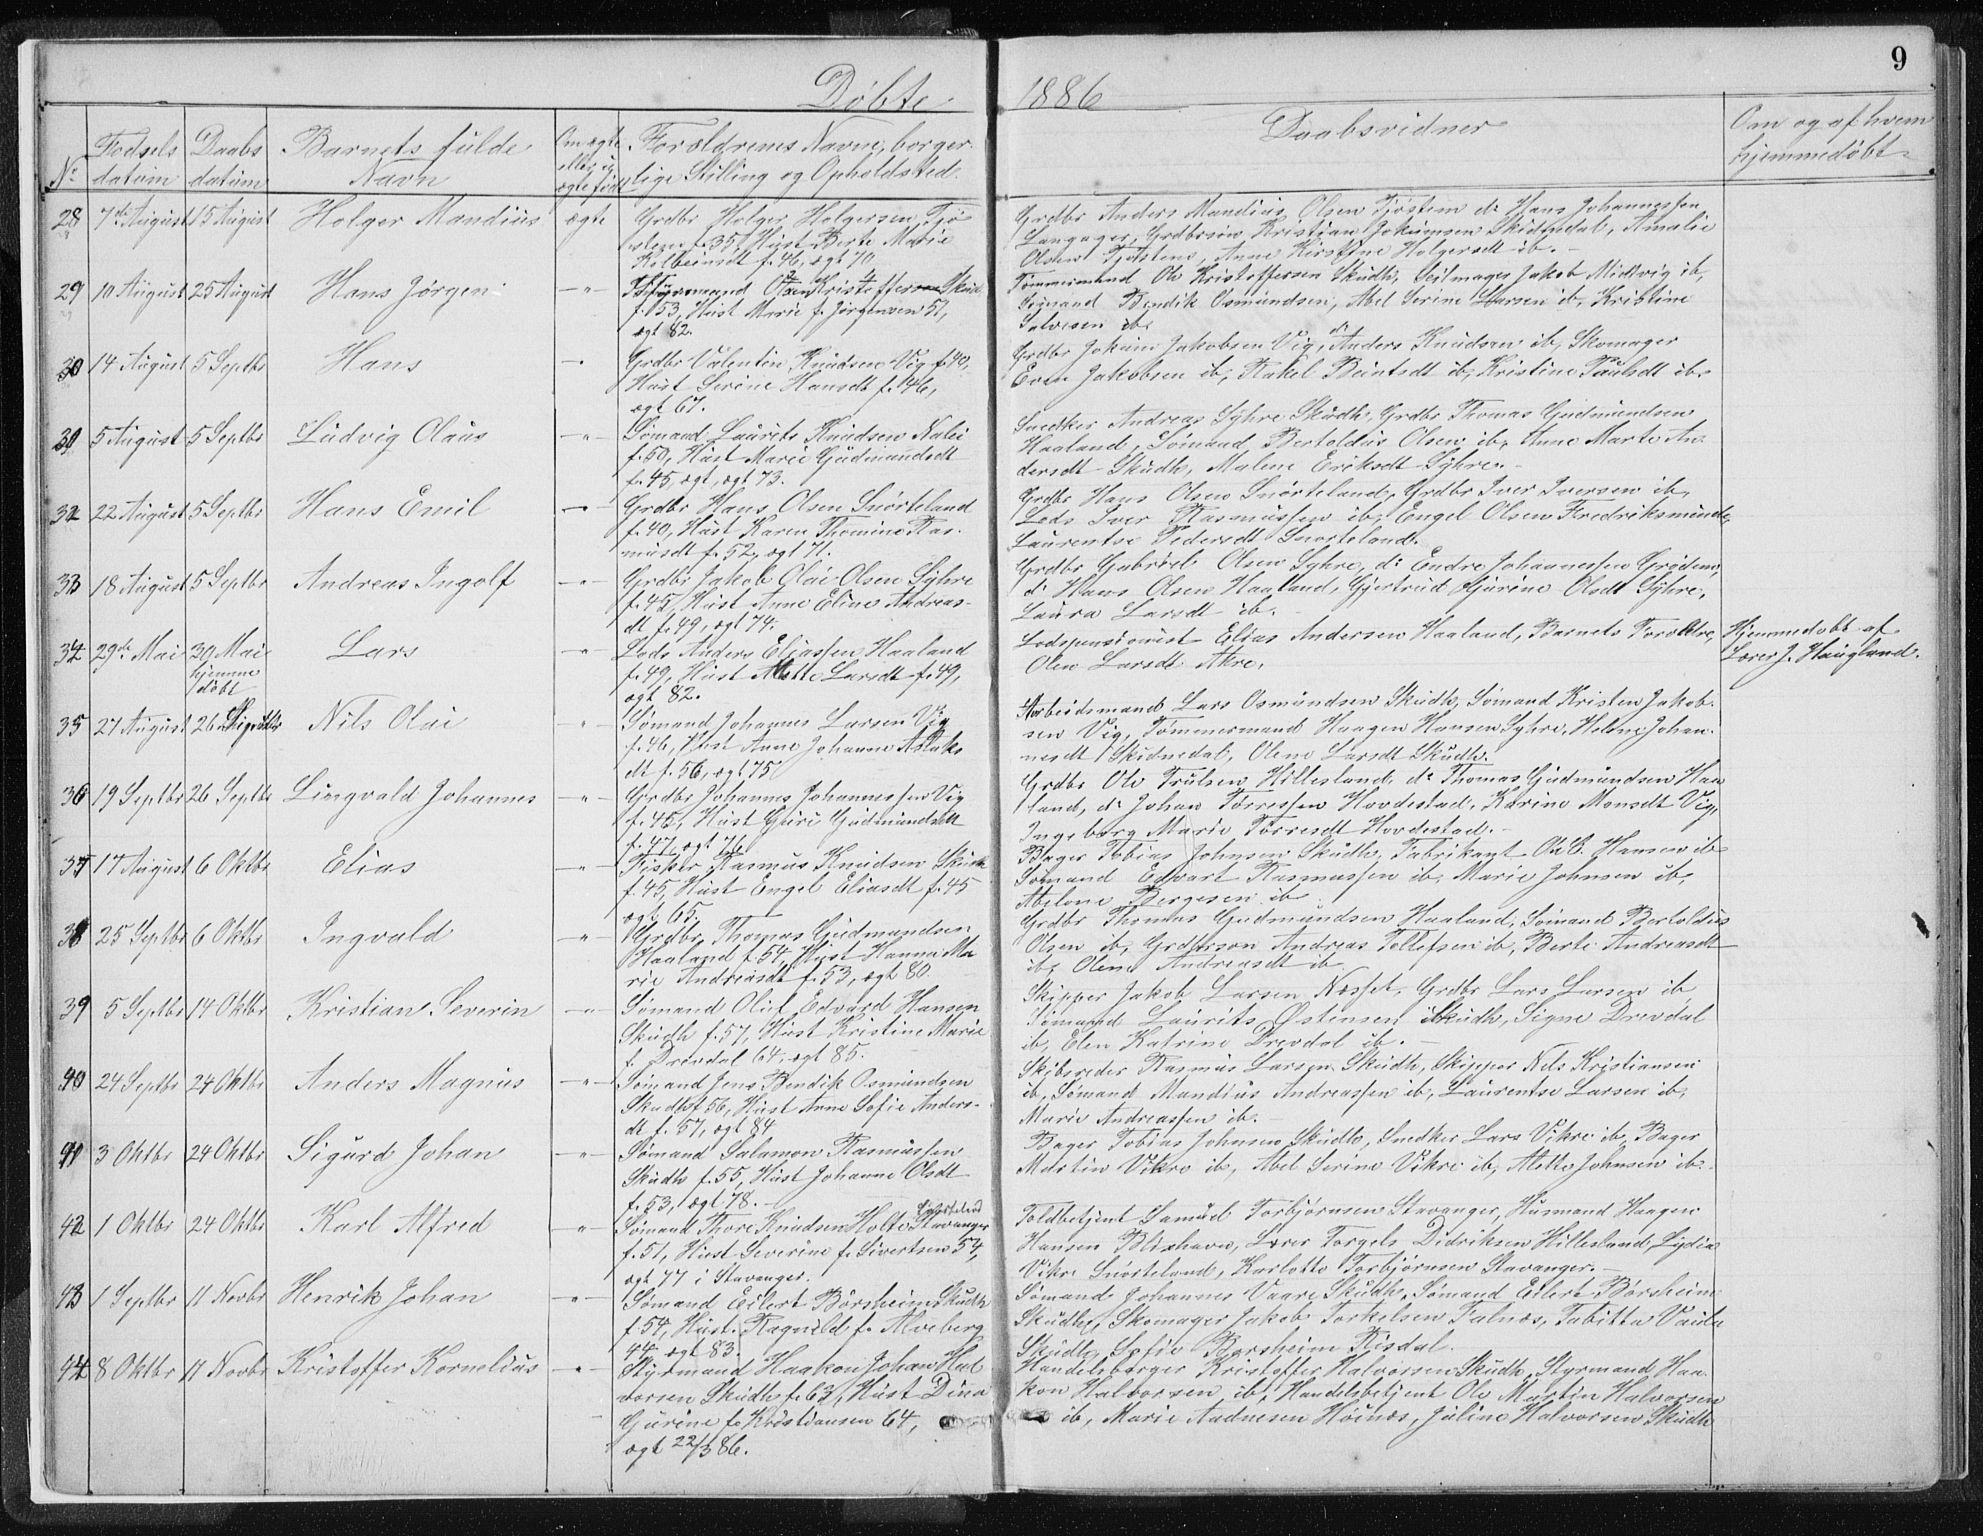 9
Döbte
1886
No
Fødsels datum
Daabs datum
Barnets fulde Navn
Om ægte eller uægte født
Forældrenes Navne, borgerlige Stilling og Opholdsted.
Daabsvidner
Om og af hvem hjemmedøbt
28 7de August 15 August Holger Mandius ægte
Grdbr Holger Holgersen Tjö
stem f. 35, Hust Berte Marie
Kolbeinsdt f. 46, ægt 70
Grdbr Anders Mandius Olsen Tjöstem do Hans Johannessen
Langager, Grdbrsön Kristian Jokumsen Skidnedal, Amalie
Olsen Tjöstem, Anne Kirstine Holgersdt ib.
29 10 August 25 August Hans Jörgen -"-
Styrmand Olsen Kristoffersen Skud
f. 53, Hust Marie f. Jörgensen 51,
ægt 82.
Tömmermand Ole Kristoffersen Skudh, Seilmager Jakob Midtvig ib,
Sömand Bendik Osmundsen, Abel Serine Larsen ib, Kristine
Salvesen ib.
30 14 August 5 Septbr Hans -"-
Grdbr Valentin Knudsen Vig f. 40,
Hust Serine Hansdt f. 46,
ægt 67.
Grdbr Jokum Jakobsen Vig, do Anders Knudsen ib, Skomager
Even Jakobsen ib, Rakel Beintsdt ib, Kristine Paulsdt ib.
31 5 August 5 Septbr Ludvig Olaus -"-
Sömand Laurits Knudsen Nalei
f. 50, Hust Marie Gudmundsdt
f. 45, ægt, ægt 73.
Snedker Andreas Syhre Skudh, Grdbr Thomas Gudmundsen
Haaland, Sömand Bertoldus Olsen ib, Anne Marte An
dersdt Skudh, Malene Eriksdt Syhre.
32 22 August 5 Septbr Hans Emil -"-
Grdbr Hans Olsen Snörteland
f. 40, Hust Karen Thomine Ras-
musdt f. 52, ægt 71.
Grdbr Hans Olsen Snörteland, Grdbr Iver Iversen ib,
Lods Iver Rasmussen ib, Engel Olsen Fredriksminde,
Laurentse Pedersdt Snorteland.
33 18 August 5 Septbr Andreas Ingolf -"-
Grdbr Jakob Olai Olsen Syhre
f. 45, Hust Anne Eline Andreas-
dt f. 49, ægt 74.
Grdbr Gabriel Olsen Syhre, do Endre Johannessen Grödem,
do Hans Olsen Haaland, Gjertrud Gurine Olsdt Syhre,
Laura Larsdt ib.
34 29de Mai 30 Mai hjemme døbt Lars -"-
Lods Anders Eliassen Haaland
f. 49, Hust Mette Larsdt f. 49,
ægt 82.
Lodspensionist Elias Andersen Haaland, Barnets Forældre,
Olene Larsdt Akre.
Hjemmedøbt af
Lærer J. Haugland.
35 27 August 26 Septbr Nils Olai -"-
Sömand Johannes Larsen Vig
f. 46, Hust Anne Johanne Aslaks
dt f. 56, ægt 75
Arbeidsmand Lars Osmundsen Skudh, Sömand Kristen Jakob-
sen Vig, Tömmermand Haagen Hansen Syhre, Helene Johan
nesdt Skidnedal, Olene Larsdt Skudh.
36 19 Septbr 26 Septbr Lingvald Johannes -"-
Grdbr Johannes Johannessen Vig
f. 45, Hust Guri Gudmundsdt
f. 47, ægt 76
Grdbr Ole Trulsen Hillesland, do Thomas Gudmundsen Haa
land, do Johan Torressen Hovdestad, Karine Monsdt Vig,
Ingeborg Marie Torresdt Hovdestad.
37 17 August 6 Oktbr Elias -"-
Fisker Rasmus Knudsen Skudh
f. 45, Hust Engel Eliasdt f. 45
ægt 65.
Bager Tobias Johnsen Skudh, Fabrikant O. B. Hansen ib
Sömand Edvart Rasmussen ib, Marie Johnsen ib,
Abelone Børgesen ib
38 25 Septbr 6 Oktbr Ingvald -"-
Grdbr Thomas Gudmundsen
Haaland f. 51, Hust Hanna Ma
rie Andreasdt f. 53, ægt 80.
Grdbr Thomas Gudmundsen Haaland, Sömand Bertoldus
Olsen ib, Grdbrsön Andreas Tollefsen ib, Berte Andreasdt
ib, Olene Andreasdt ib
39 5 Septbr 14 Oktbr Kristian Severin -"-
Sömand Oluf Edvard Hansen
Skudh f. 57, Hust Kristine Marie
f. Drevdal 64, ægt 85.
Skipper Jakob Larsen Næsset, Grdbr Lars Larsen ib,
Sömand Laurits Östensen Skudh, Signe Drevdal
ib, Elen Katrine Drevdal ib.
40 24 Septbr 24 Oktbr Anders Magnus -"-
Sömand Jens Bendik Osmundsen
Skudh f. 56, Hust Anne Sofie Anders-
dt f. 57, ægt 84
Skibsreder Rasmus Larsen Skudh, Skipper Nils Kristiansen
ib, Sömand Mandius Andreassen ib, Laurentse Larsen ib,
Marie Andreassen ib.
41 3 Oktbr 24 Oktbr Sigurd Johan -"-
Sömand Salamon Rasmussen
Skudh f. 55, Hust Johanne Olsdt
f. 53, ægt 78.
Bager Tobias Johnsen Skudh, Snedker Lars Vikre ib, Bager
Martin Vikre ib, Abel Serine Vikre ib, Mette Johnsen ib.
42 1 Oktbr 24 Oktbr Karl Alfred -"-
Sömand Thore Knudsen Holte Stavanger
f. 51, Hust Severine f. Sivertsen 54,
ægt 77 i Stavanger.
Toldbetjent Samuel Torbjörnsen Stavanger, Husmand Haagen
Hansen Blixhavn, Lærer Torgels Didriksen Hillesland, Lydia
Vikre Snörteland, Karlotte Torbjörnsen Stavanger.
43 1 Septbr 11 Novbr Henrik Johan -"-
Sömand Eilert Börsheim Skudh
f. 54, Hust. Ragnild f. Alveberg
44 ægt 83.
Sömand Johannes Vaare Skudh, Sömand Eilert Börsheim
Skudh, Skomager Jakob Torkelsen Falnæs, Tabitta Vaula
Skudh, Sofie Börsheim Risdal.
44 8 Oktbr 11 Novbr Kristoffer Kornelius "
Styrmand Haakon Johan Hal
vorsen Skudh f. 63, Hust Dina
Gurine f. Kristiansen 64,
ægt 22/3 86.
Handelsborger Kristoffer Halvorsen Skudh, Styrmand Haa
kon Halvorsen ib, Handelsbetjent Ole Martin Halvorsen
ib, Marie Aadnesen Höinæs, Juline Halvorsen Skudh